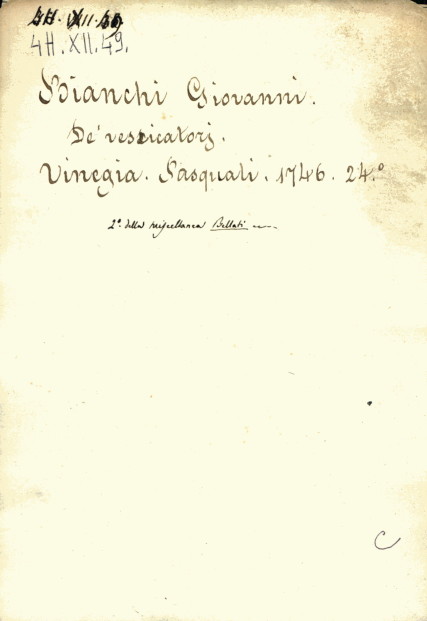 4H. XII. 49.
4H. XII. 49.
Bianchi Giovanni.
De' vescicatorj.
Vinegia. Pasquali. 1746. 24.°
2.° della miscellanea Bellati
C